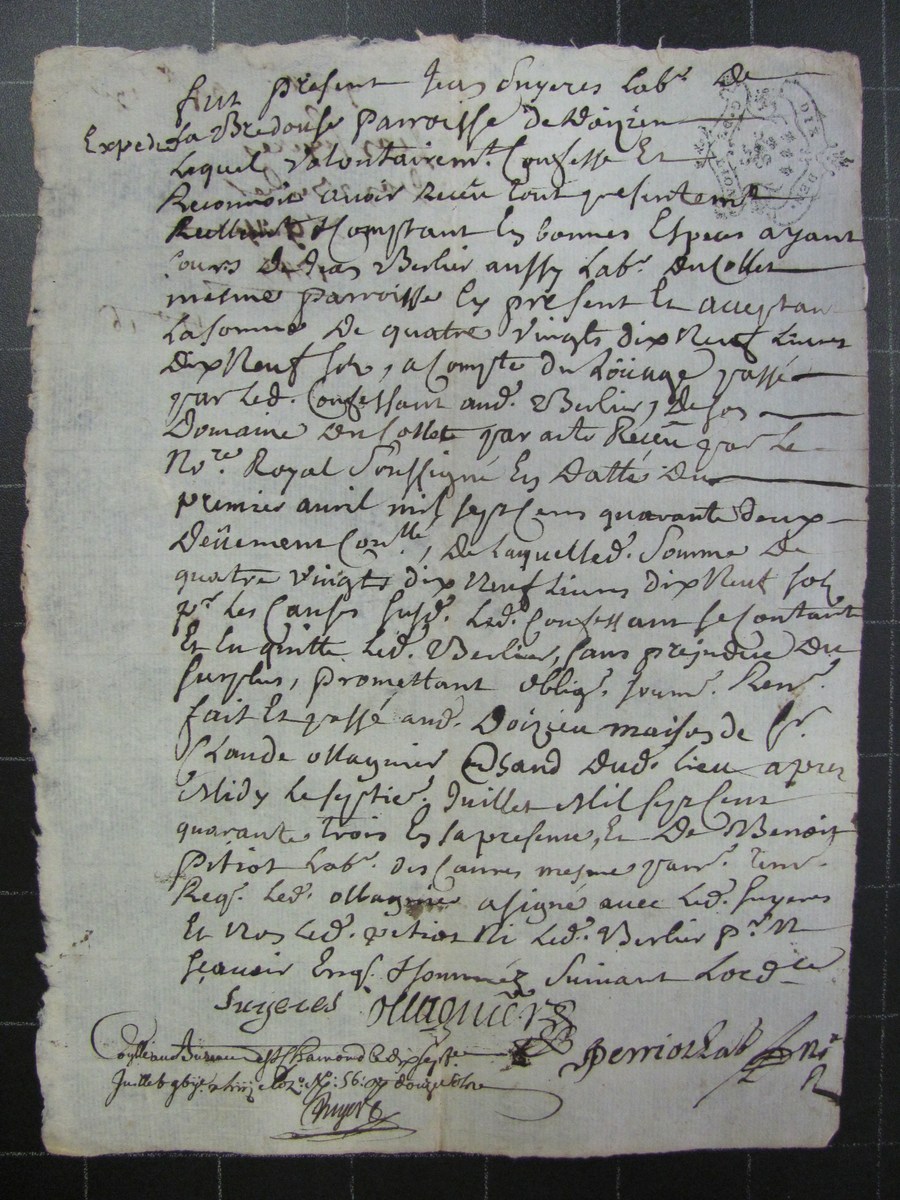 fut present Jean Suyeres Lab.r de
Expedié La Bredouse parroisse de doizieu
Lequel volontairem.t Confesse Et
Reconnoit avoir Receu tout presentem.t
Comptant En bonnes Especes ayant
Cours de Jean Berlier aussy Lab.r du Collet
mesme parroisse Cy present Et acceptant
La somme de quatre vingts dix Neuf Livres
dix Neuf sols, a Compte du Loüage passé
par Led. Confessant aud. Berlier, de son
Domaine du Collet par acte Receu par le
No.re Royal Soussigné En datte du
premier avril mil sept Cens quarante deux
deüement Con.llé, de Laquelle d. Somme de
quatre vingts dix Neuf Livres dix Neuf sols
p.r Les Causes susd. Led. Confessant se Contante
Et En quitte Led. Berlier, sans prejudice du
surplus, promettant oblig. soum. Ren.
fait Et passé aud. Doizieu maison de Sr.
Claude ollagnier dud. lieu apres
Midy Le septie. Juillet Mil sept Cent
quarante trois En sa presence, Et De Benoit
pitiot Lab.r des mesme parr. tem.
Req. Led. ollagnier a signé avec Led. Suyeres
Et Non Led. pitiot Ni Led. Berlier p.r Ne
sçavoir Enq. & sommés Suivant Lord.ce
Suyeres ollagnier
au Bureau de St Chamond Le dix sept
Juillet douze sols